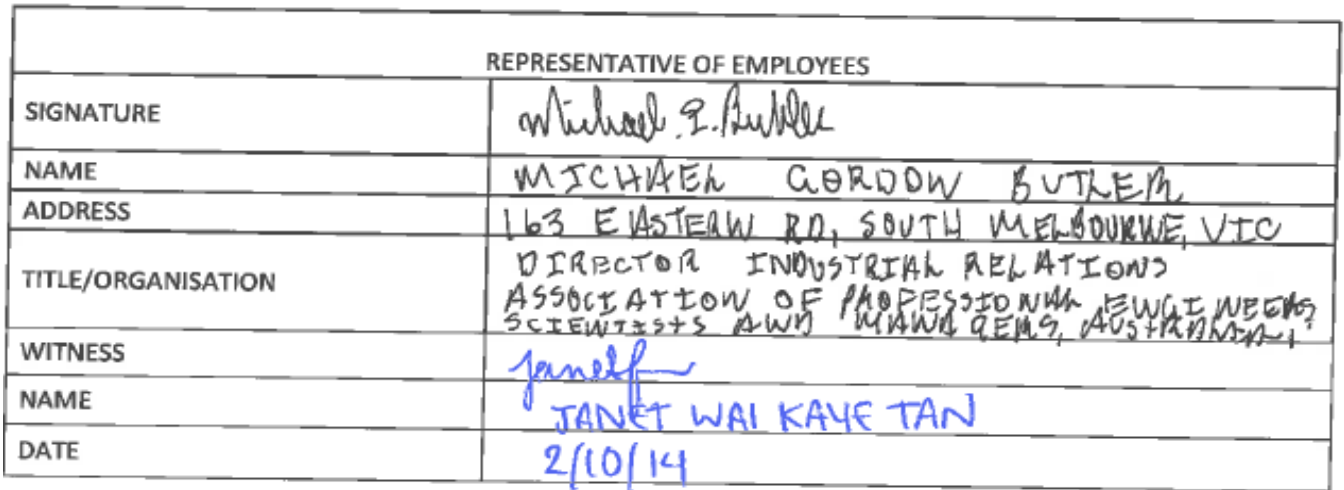 REPRESENTATIVE OF EMPLOYEES
SIGNATURE Michael G. Butler
NAME MICHAEL GORDON BUTLER
ADDRESS 163 EASTERN RD, SOUTH MELBOURNE, VIC
TITLE/ORGANISATION DIRECTOR INDUSTRIAL RELATIONS
ASSOCIATION OF PROFESSIONAL ENGINEERS
SCIENTISTS AND MANAGERS, AUSTRALIA.
WITNESS
NAME JANET WAI KAYE TAN
DATE 2/10/14